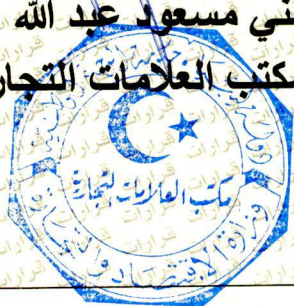 ني مسعود عبد الله
مكتب العلامات التجار
مكتب العلامات التجارية
وزارة الاقتصاد والتجارة
قرارات